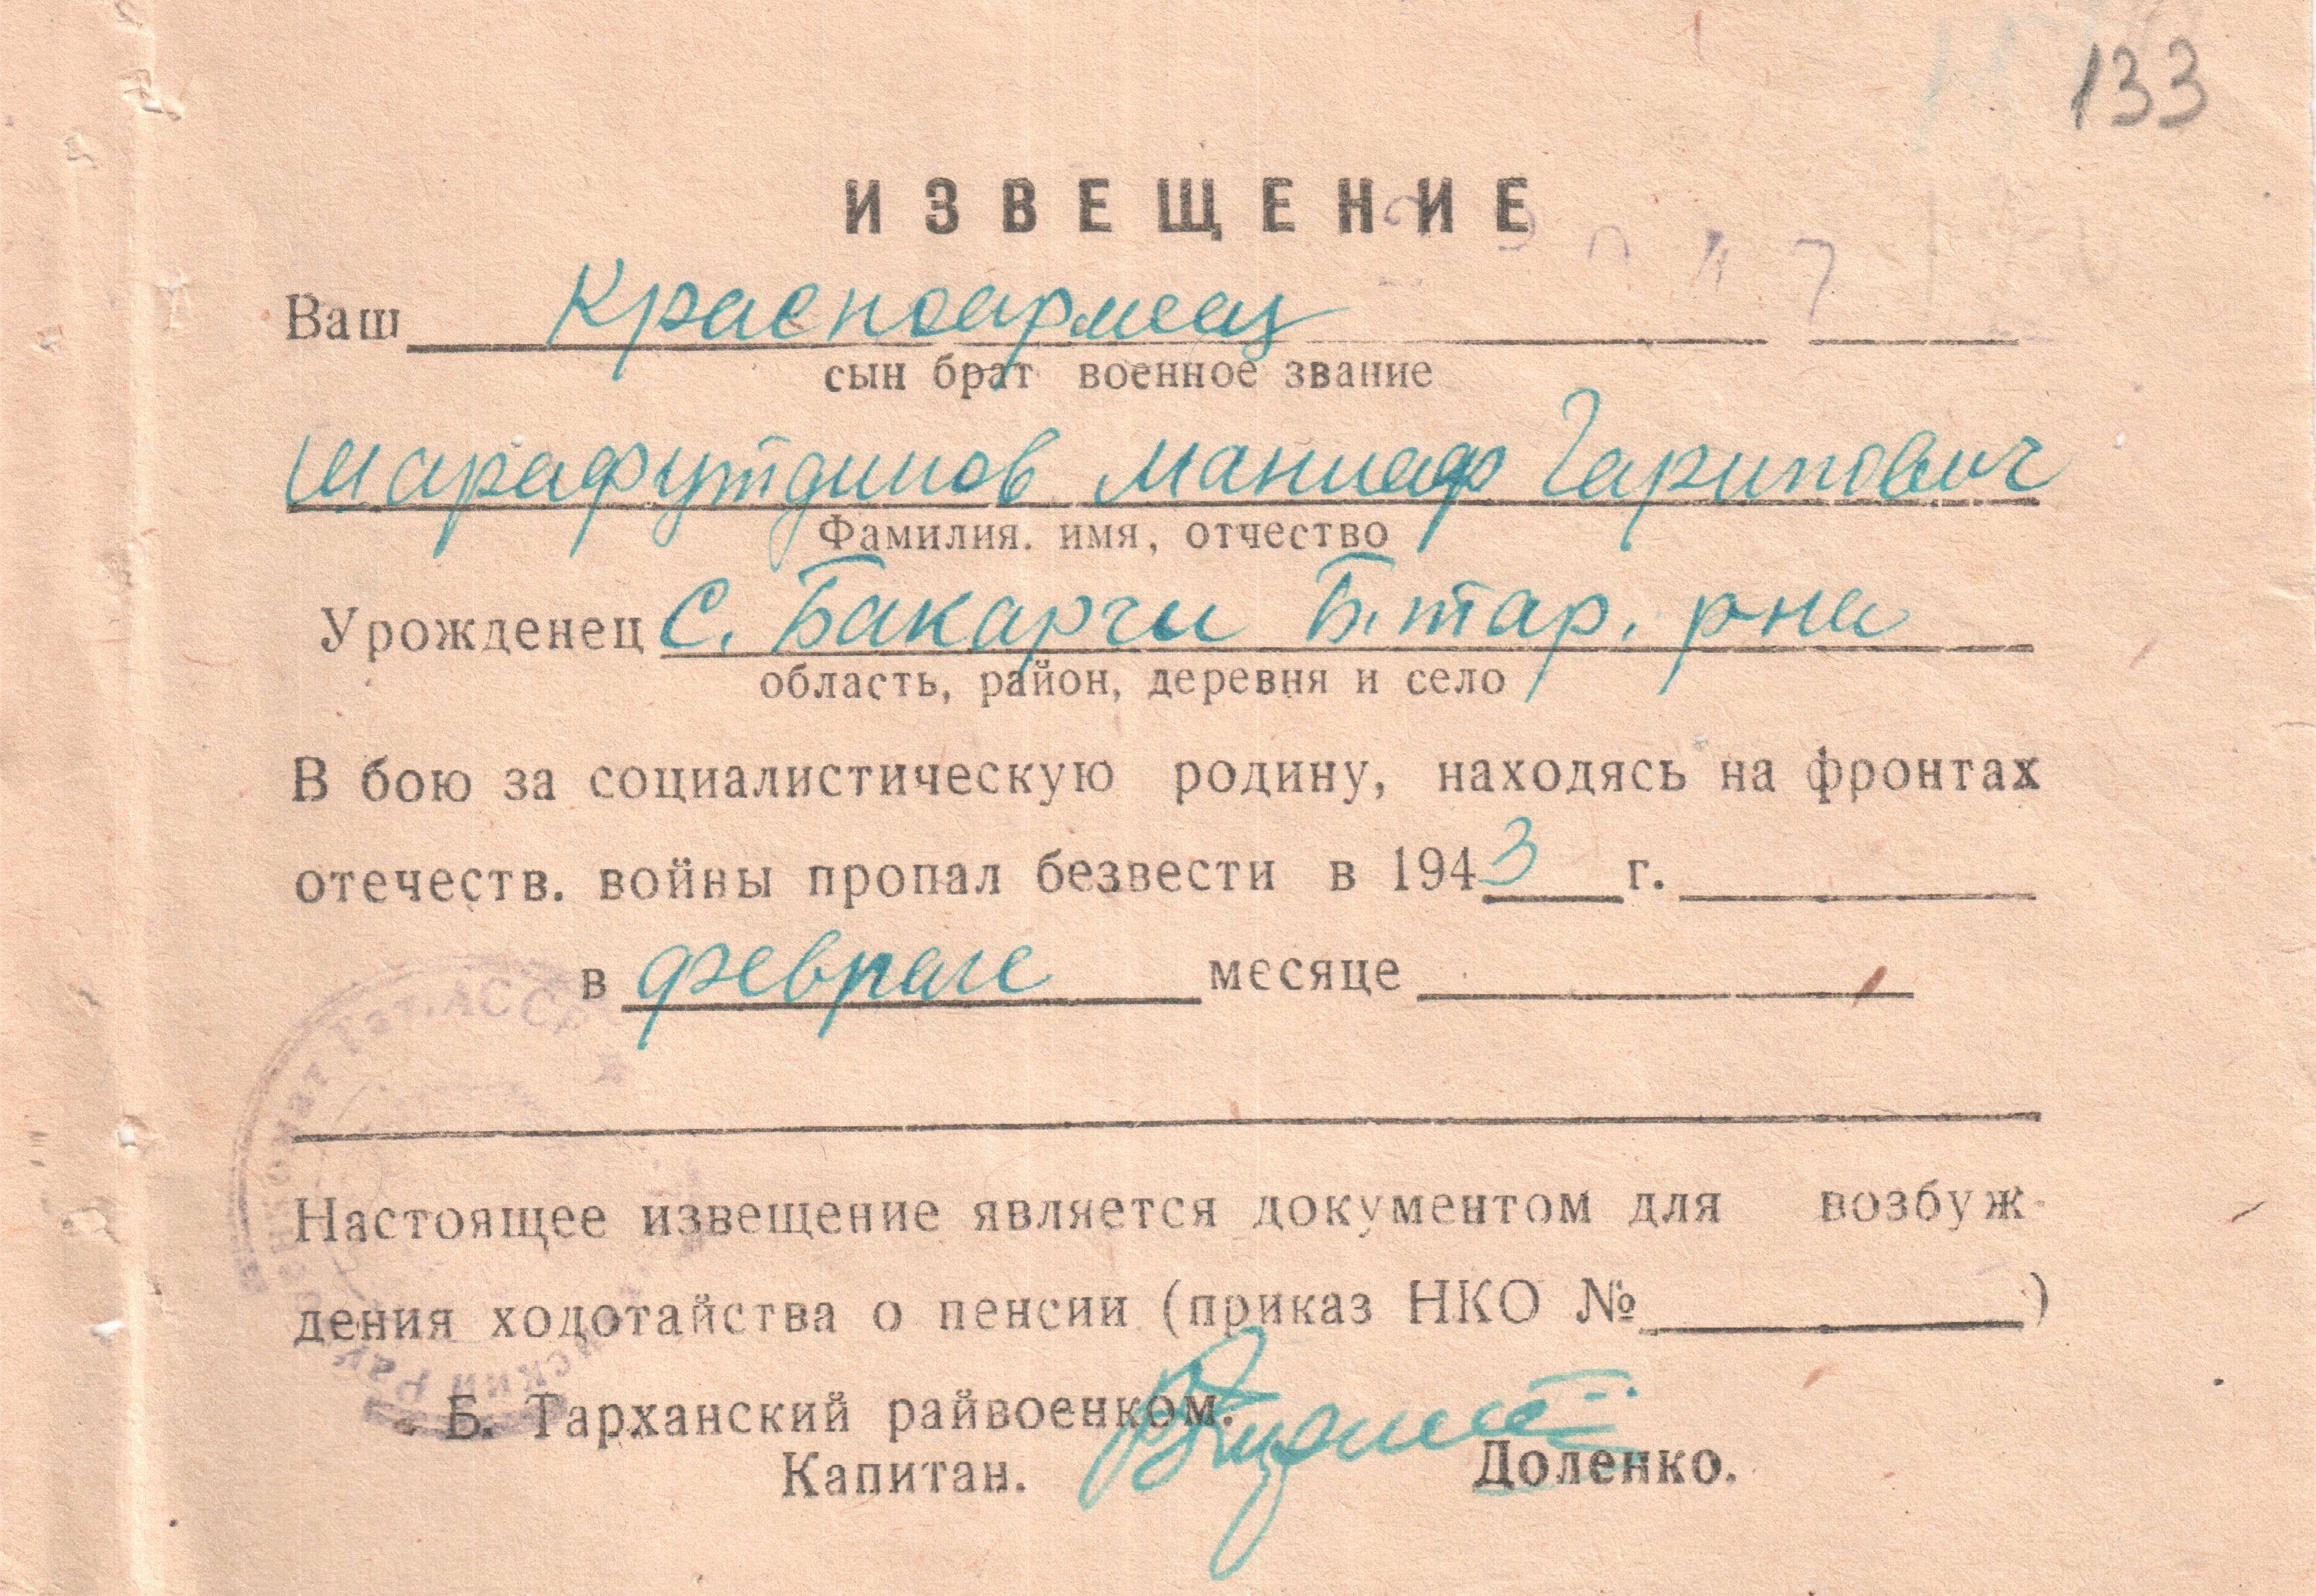 133
ИЗВЕЩЕНИЕ
Ваш Красноармеец
сын брат военное звание
Шарафутдинов Маниаф Гарипович
Фамилия. имя, отчество
Урожденец С. Бакарчи Б.тар. рна
область, район, деревня и село
В бою за социалистическую родину, находясь на фронтах
отечеств. войны пропал безвести в 1943 г.
в феврале месяце
Настоящее извещение является документом для возбуж-
дения ходотайства о пенсии (приказ НКО № )
Б. Тарханский райвоенком.
Капитан. Доленко.
Тат.АССР